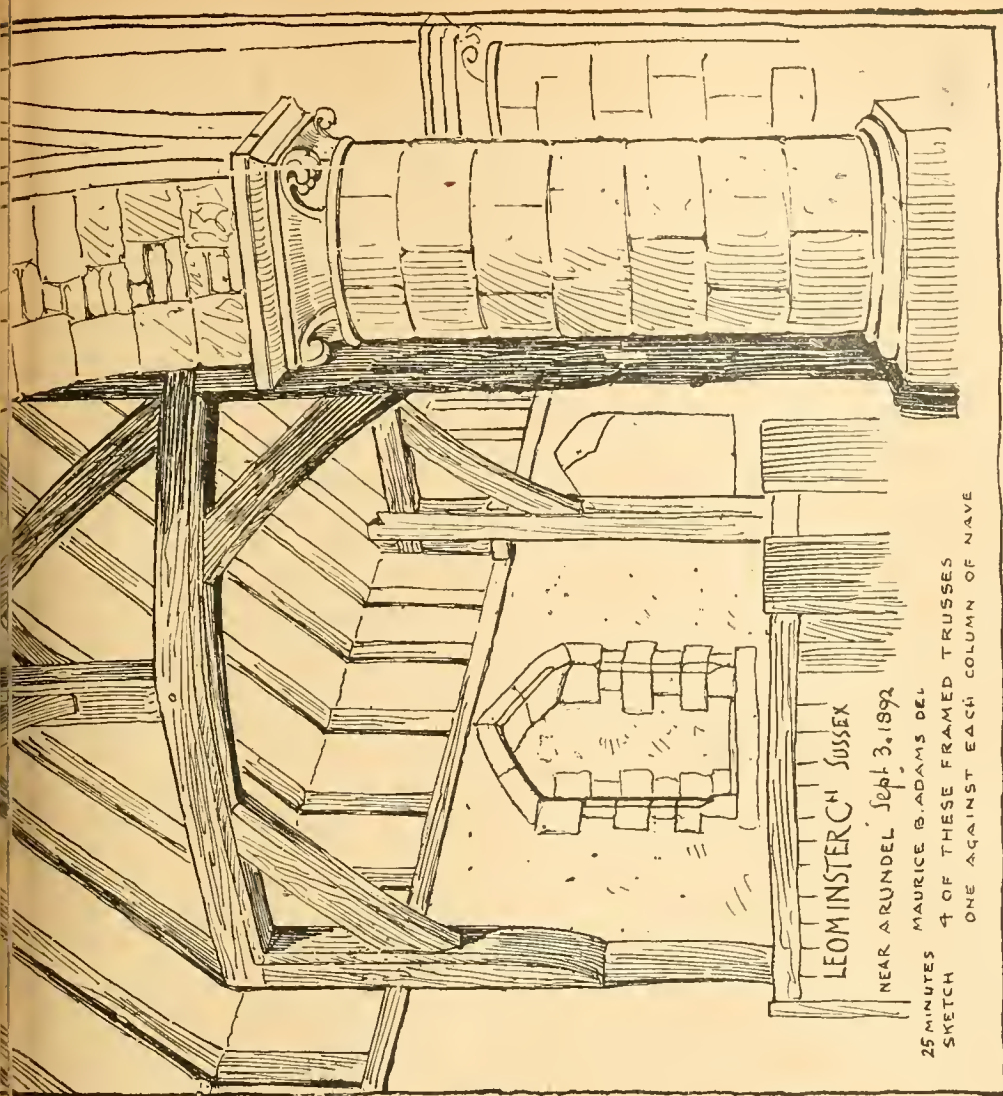 LEOMINSTER CH SUSSEX
NEAR ARUNDEL Sept 3. 1892
25 MINUTES MAURICE B. ADAMS DEL
SKETCH 4 OF THESE FRAMED TRUSSES
ONE AGAINST EACH COLUMN OF NAVE